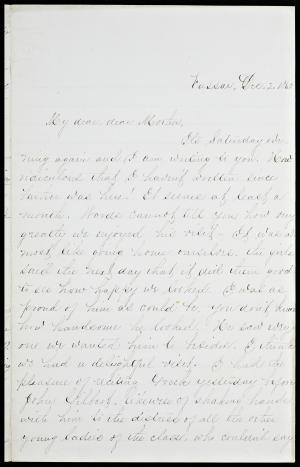 Vassar, Dec. 2, 186
My dear, dear Mother,
It's Saturday eve-
ning again and I am writing to you. How
ridiculous that I haven't written since
Father was here! It seems at least a
month. Words cannot tell you how very
greatly we enjoyed his visit. It was al-
most like going home ourselves. The girls
said the next day that it did them good
to see how happy we looked. I was as
proud of him as could be, you don't know
how handsome he looked. He saw every
one we wanted him to besides. I think
we had a delightful visit. I had the
pleasure of reciting Greek yesterday before
John likewise of shaking hands
with him to the distress of all the other
young ladies of the class, who couldn't say